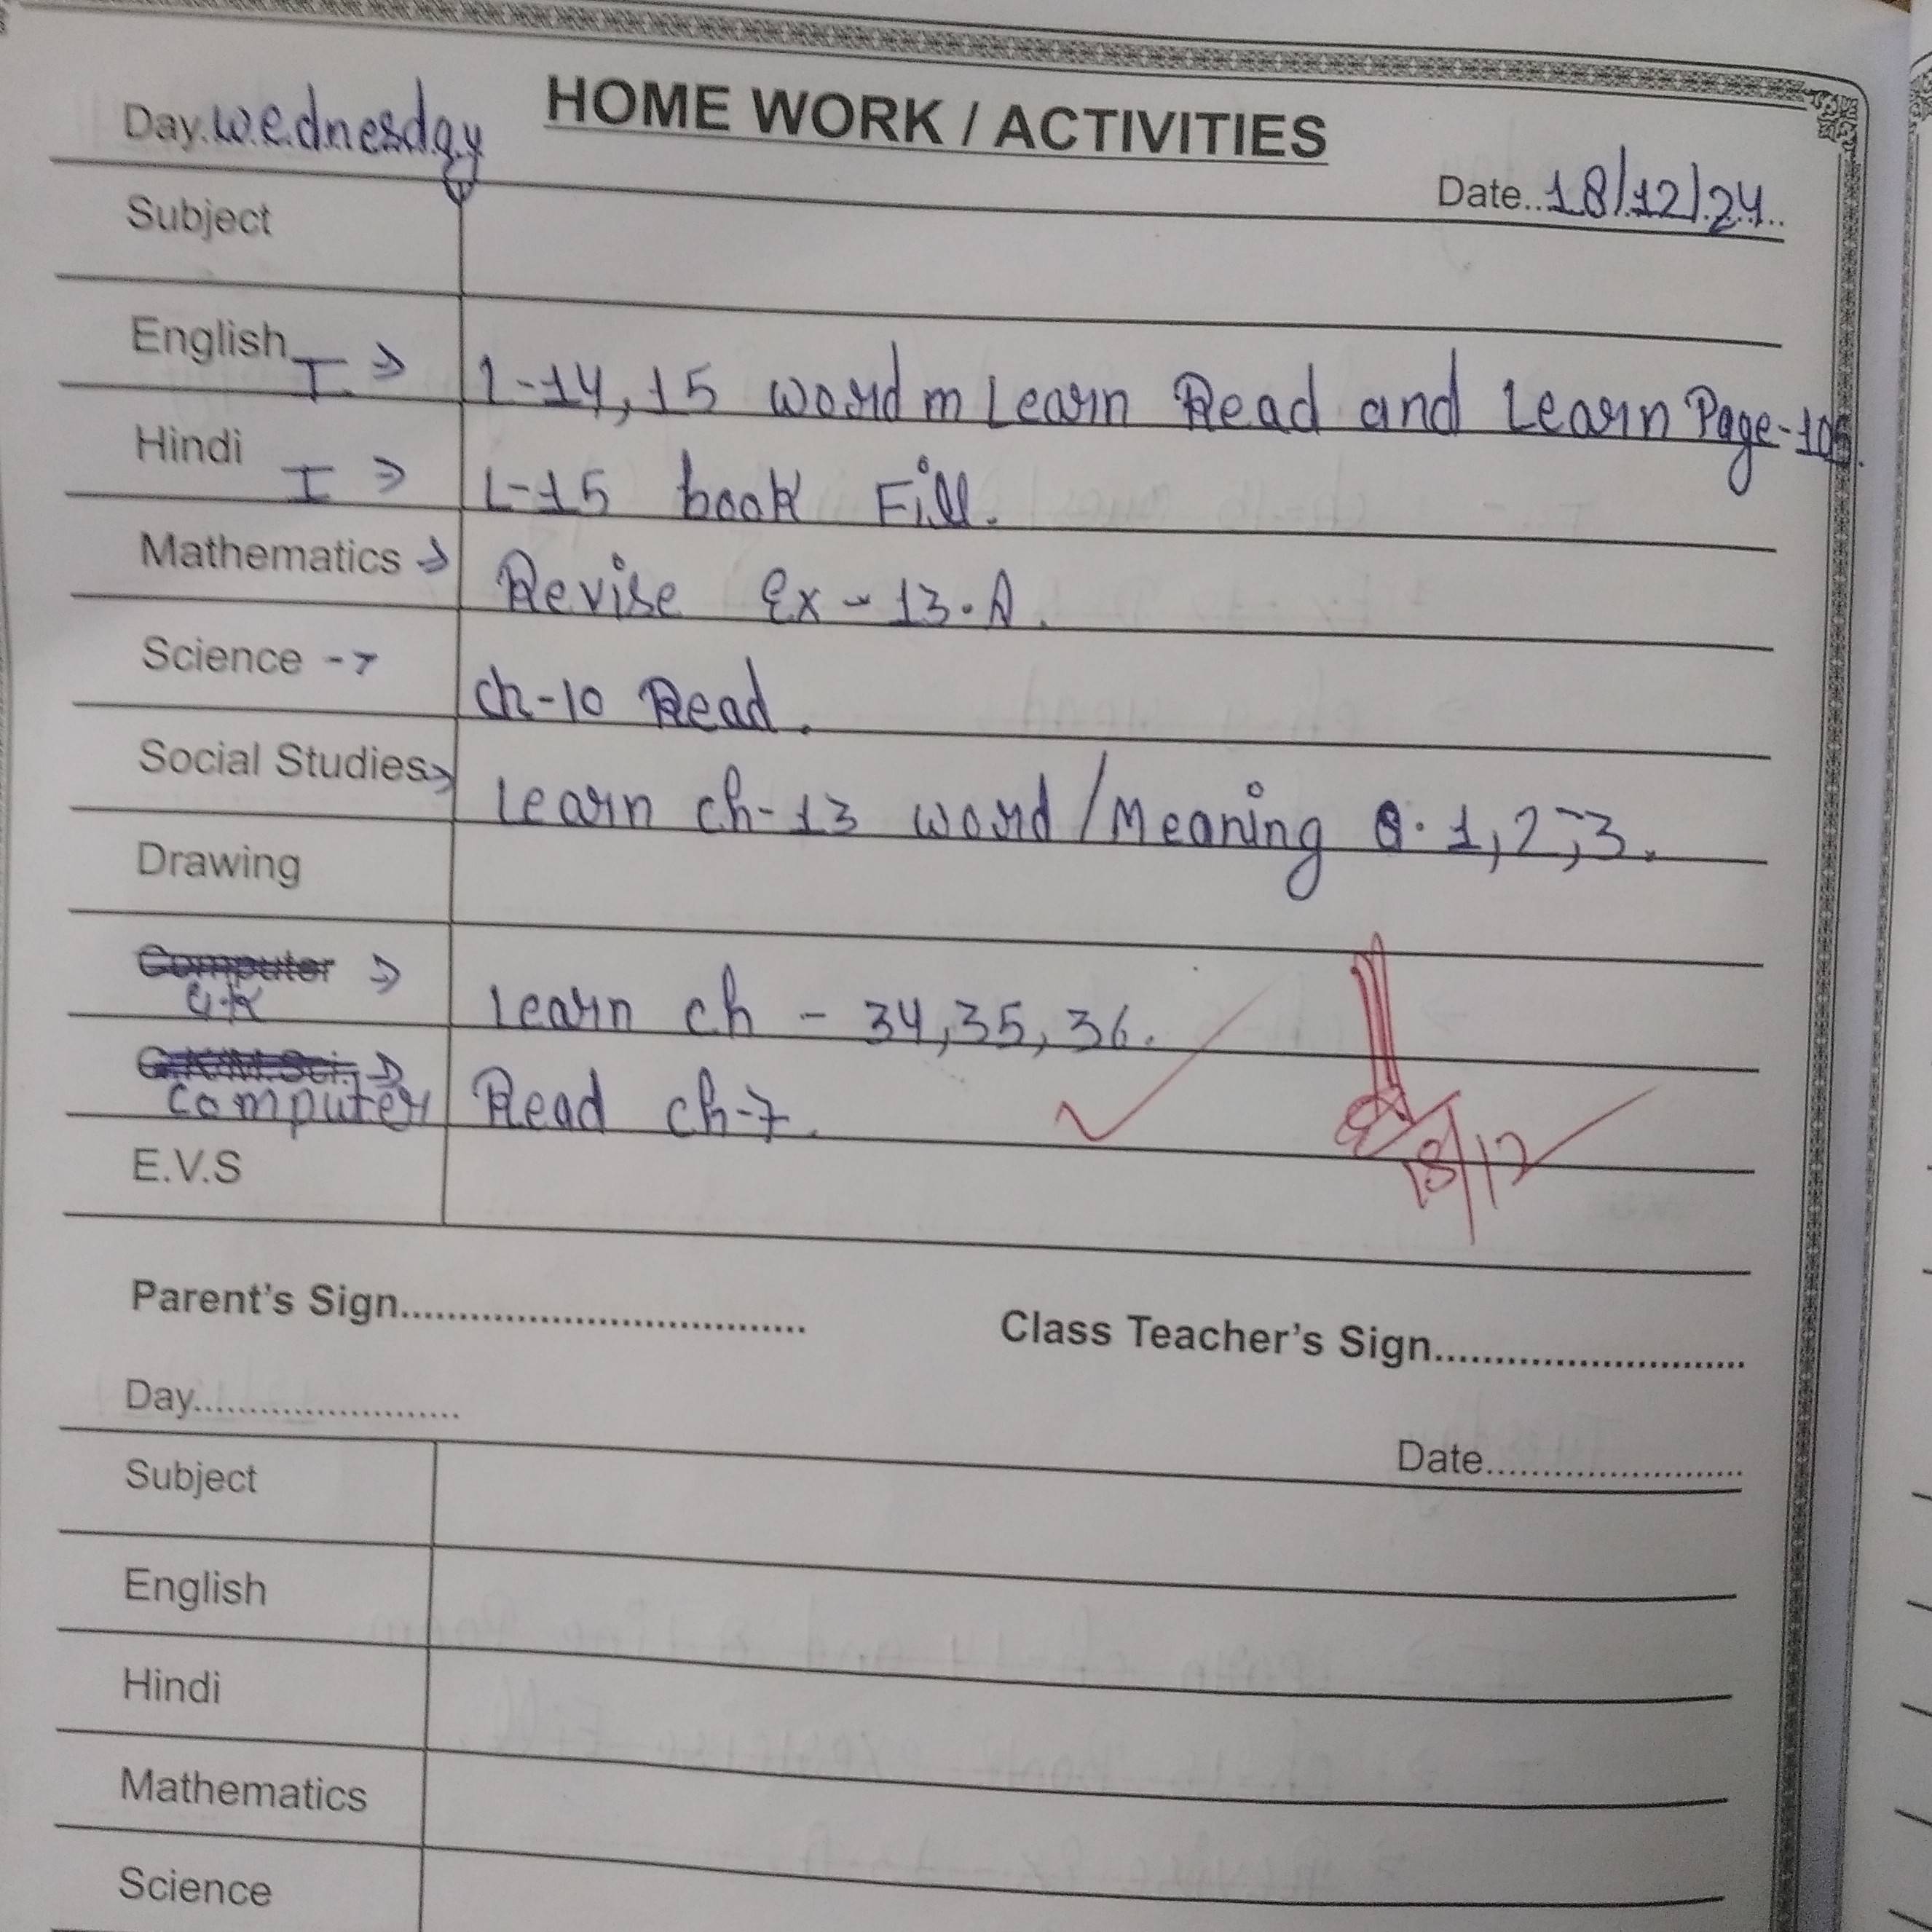 HOME WORK / ACTIVITIES
Day. Wednesday
Date.. 18/12/24..
Subject
English I ⇒ L-14, 15 word m Learn Read and Learn Page-105.
Hindi I ⇒ L-15 book Fill.
Mathematics ⇒ Revise Ex - 13.A.
Science -> Ch-10 Read.
Social Studies ⇒ Learn ch-13 word/Meaning Q. 1, 2, 3.
Drawing
Computer G.K ⇒ Learn ch - 34, 35, 36.
G.K/M.Sci. Computer Read ch-7.
18/12
E.V.S
Parent's Sign....................................
Class Teacher's Sign............................
Day........................
Date.......................
Subject
English
Hindi
Mathematics
Science